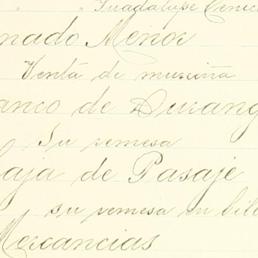 Guadalupe
nado Menor
Venta de
anco de Durang
Su remesa
aja de Pasaje
su remesa en bil
Mercancias